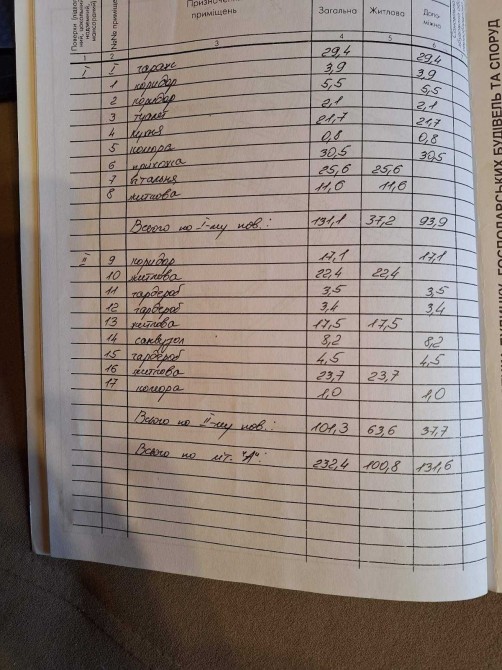 Призначення приміщень Загальна Житлова Допоміжна
1 2 3 4 5 6
I I гараж 29,4 29,4
1 коридор 3,9 3,9
2 коридор 5,5 5,5
3 туалет 2,1 2,1
4 кухня 21,7 21,7
5 комора 0,8 0,8
6 прихожа 30,5 30,5
7 вітальня 25,6 25,6
8 житлова 11,6 11,6
Всього по I-му пов.: 131,1 37,2 93,9
II 9 коридор 17,1 17,1
10 житлова 22,4 22,4
11 гардероб 3,5 3,5
12 гардероб 3,4 3,4
13 житлова 17,5 17,5
14 санвузол 8,2 8,2
15 гардероб 4,5 4,5
16 житлова 23,7 23,7
17 комора 1,0 1,0
Всього по II-му пов.: 101,3 63,6 37,7
Всього по літ. "А": 232,4 100,8 131,6
ГОСПОДАРСЬКИХ БУДІВЕЛЬ ТА СПОРУД